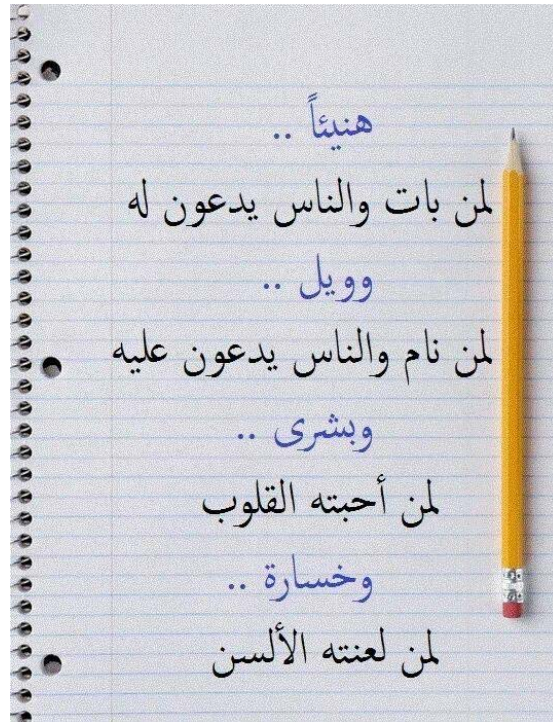 هنيئاً ..
لمن بات والناس يدعون له
وويل ..
لمن نام والناس يدعون عليه
وبشرى ..
لمن أحبته القلوب
وخسارة ..
لمن لعنته الألسن